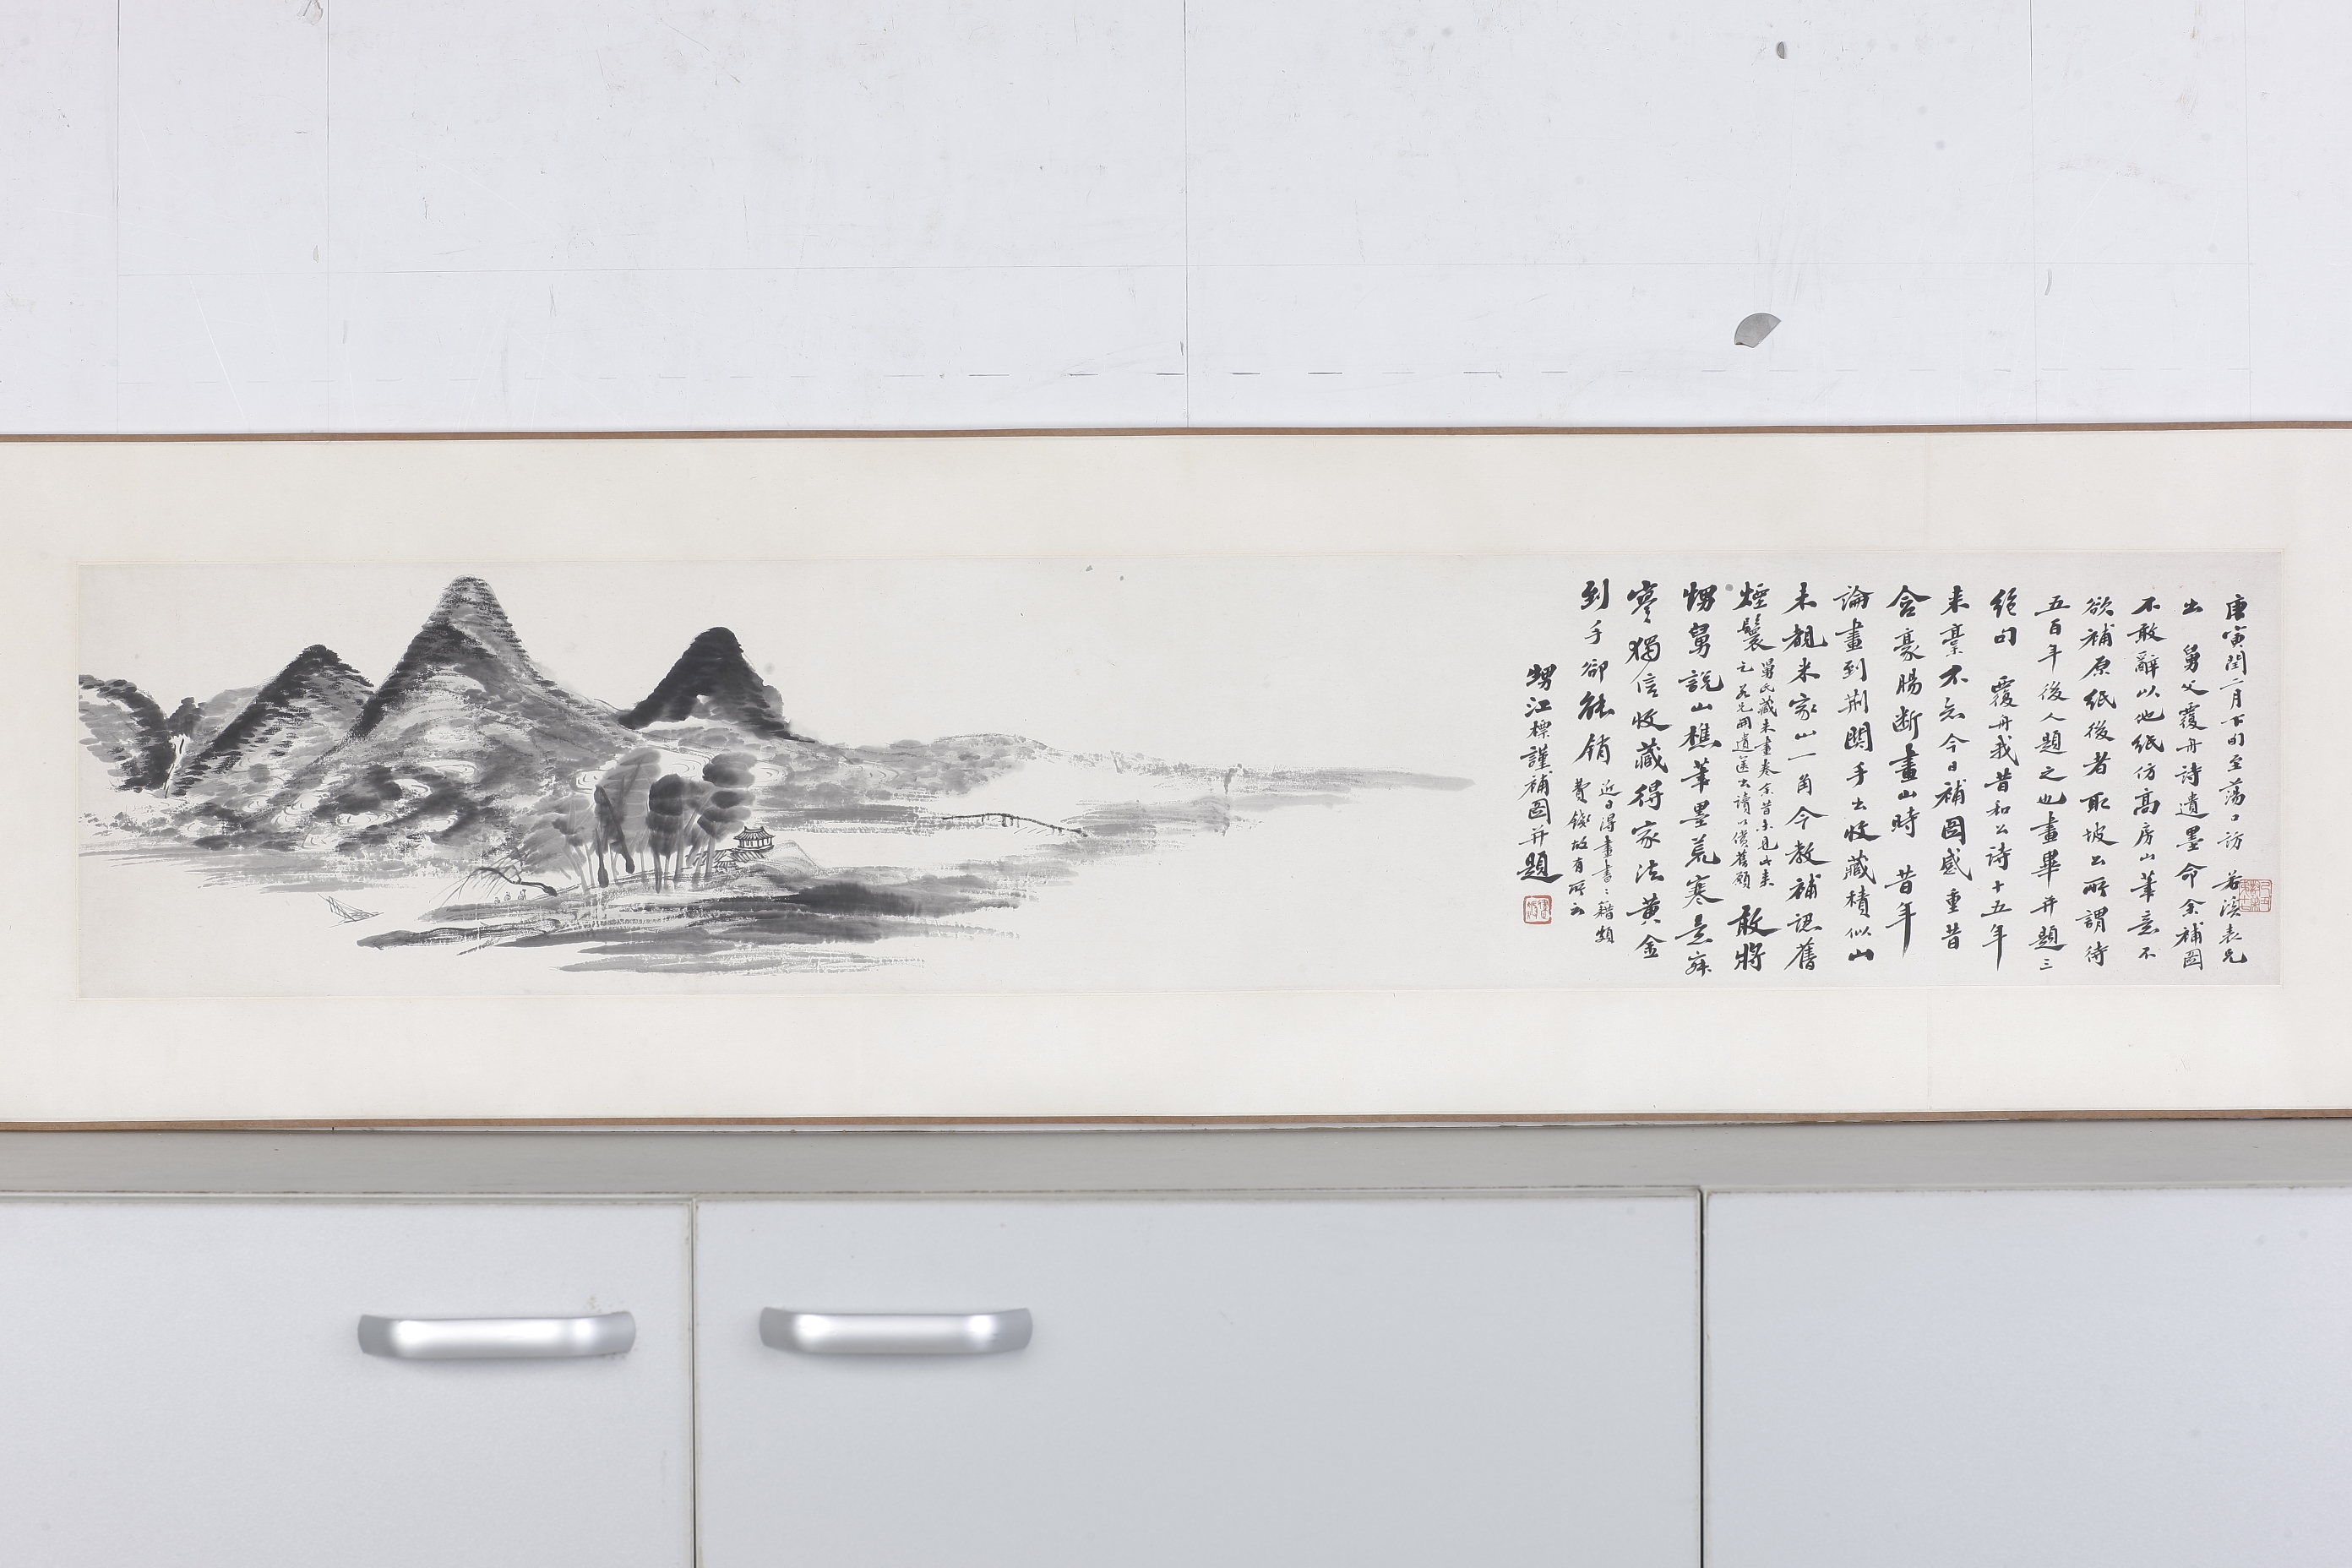 庚寅閏二月下旬至蕩口訪 若溪表兄
出 舅父覆舟詩遺墨命余補圖
不敢辭以他紙仿高房山筆意不
欲補原紙後者取坡公所謂待
五百年後人題之也畫畢并題三
絕句 覆舟我昔和公詩十五年
來稾不忘今日補圖感重昔
含豪腸斷畫山時 昔年
論畫到荆關手出收藏積似山
未覩米家山一角今教補認舊
煙鬟
舅氏藏米畫卷余昔未見此來
之 若兄開遺篋出讀以償舊願
敢將
甥舅說山樵筆墨荒寒意寂
寥獨信收藏得家法黃金
到手卻能銷
近日得畫書籍頗
費錢故有所云
甥江標謹補圖并題